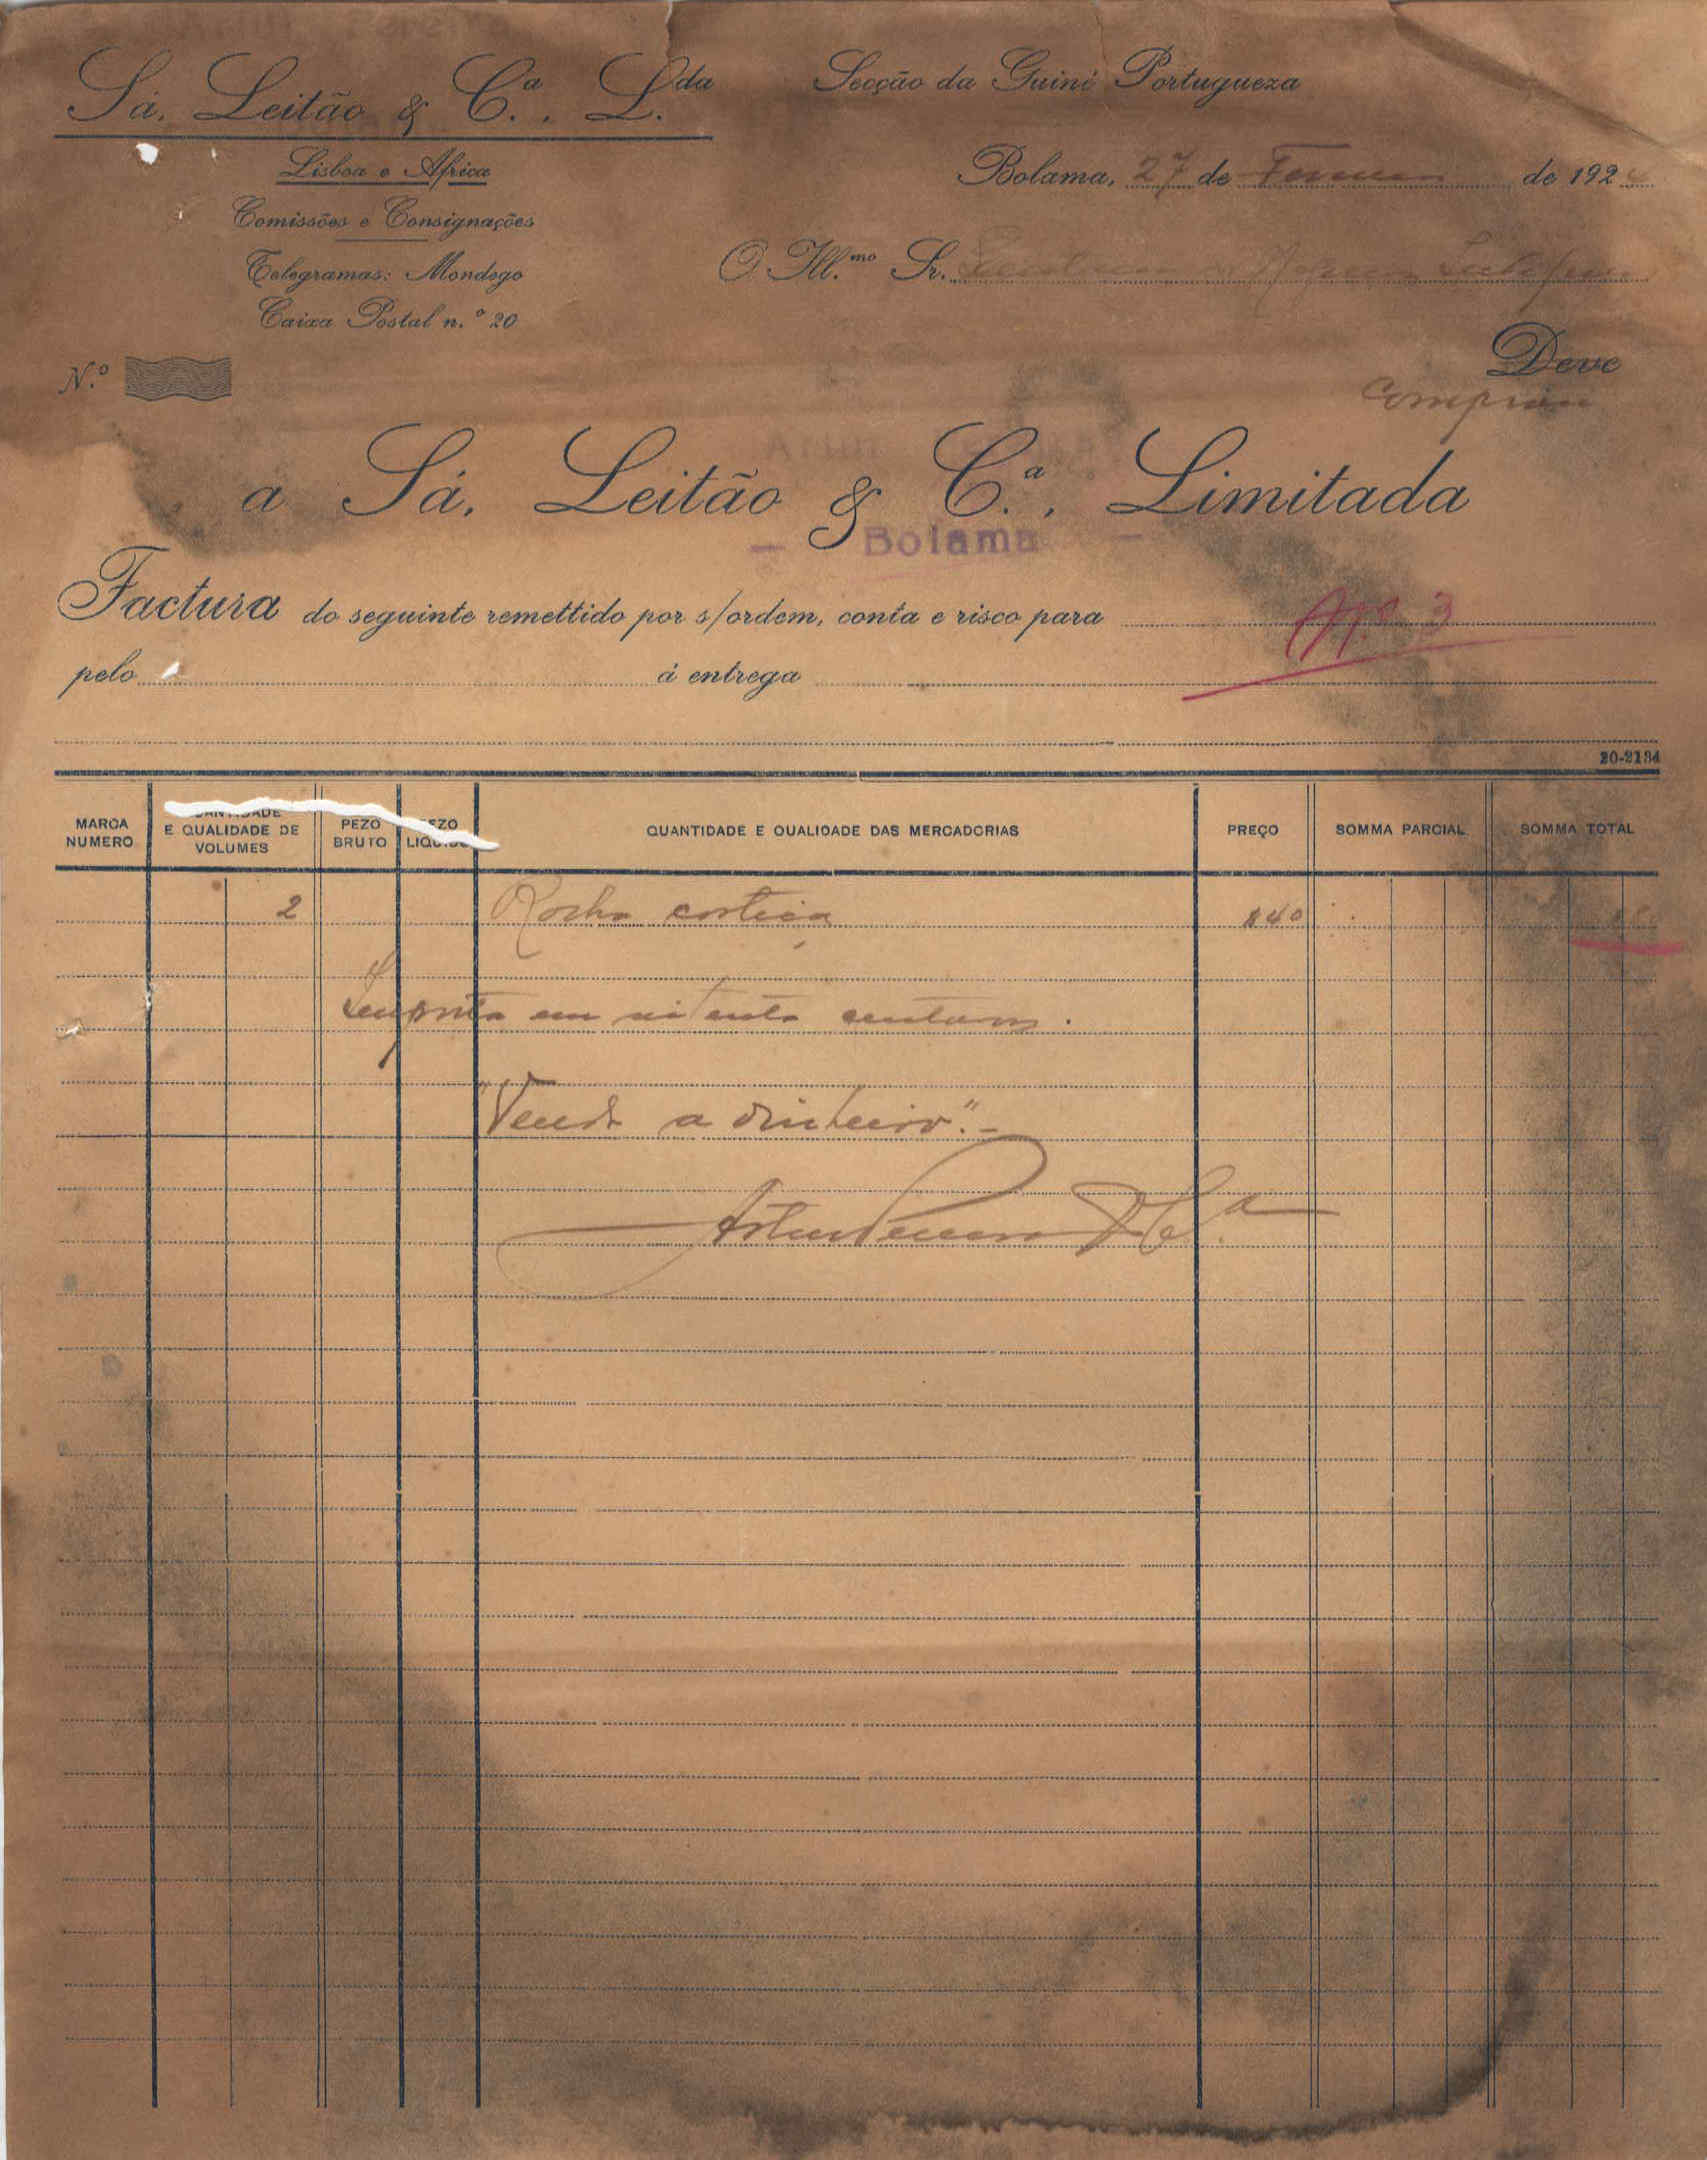 Sá, Leitão & C.ª, L.da
Secção da Guiné Portugueza
Lisboa e Africa
Comissões e Consignações
Telegramas: Mondego
Caixa Postal n.º 20
Bolama, 27 de de 192
O Ill.mo Sr.
N.º
Deve
a Sá, Leitão & C.ª, Limitada
Bolama
Factura do seguinte remettido por s/ordem, conta e risco para
Nº 3
pelo á entrega
20-2134
MARCA NUMERO
QUANTIDADE E QUALIDADE DE VOLUMES
PEZO BRUTO
PEZO LIQUIDO
QUANTIDADE E QUALIDADE DAS MERCADORIAS
PREÇO
SOMMA PARCIAL
SOMMA TOTAL
2 cortiça $40
Importa em oitenta centavos.
"Venda a dinheiro".-
Artur &C.ª